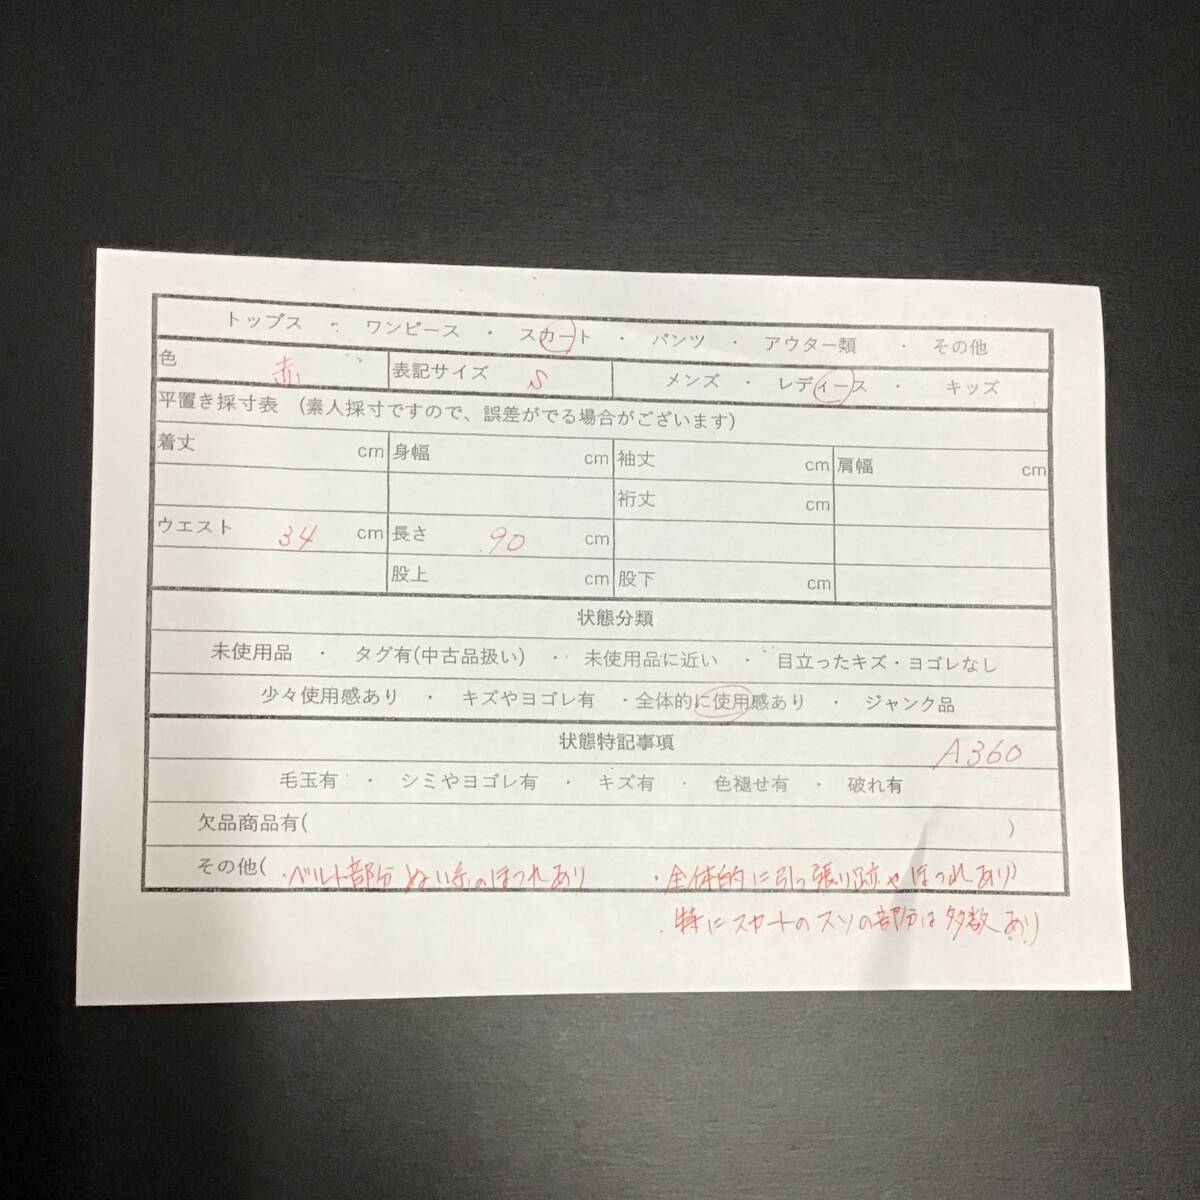 トップス ・ ワンピース ・ スカート ・ パンツ ・ アウター類 ・ その他
色 赤 表記サイズ S メンズ ・ レディース ・ キッズ
平置き採寸表 (素人採寸ですので、誤差がでる場合がございます)
着丈 cm 身幅 cm 袖丈 cm 肩幅 cm
裄丈 cm
ウエスト 34 cm 長さ 90 cm
股上 cm 股下 cm
状態分類
未使用品 ・ タグ有(中古品扱い) ・ 未使用品に近い ・ 目立ったキズ・ヨゴレなし
少々使用感あり ・ キズやヨゴレ有 ・全体的に使用感あり ・ ジャンク品
状態特記事項 A360
毛玉有 ・ シミやヨゴレ有 ・ キズ有 ・ 色褪せ有 ・ 破れ有
欠品商品有( )
その他( ・ベルト部分ぬい糸のほつれあり ・全体的に引っ張り跡やほつれあり)
・特にスカートのスソの部分は多数あり